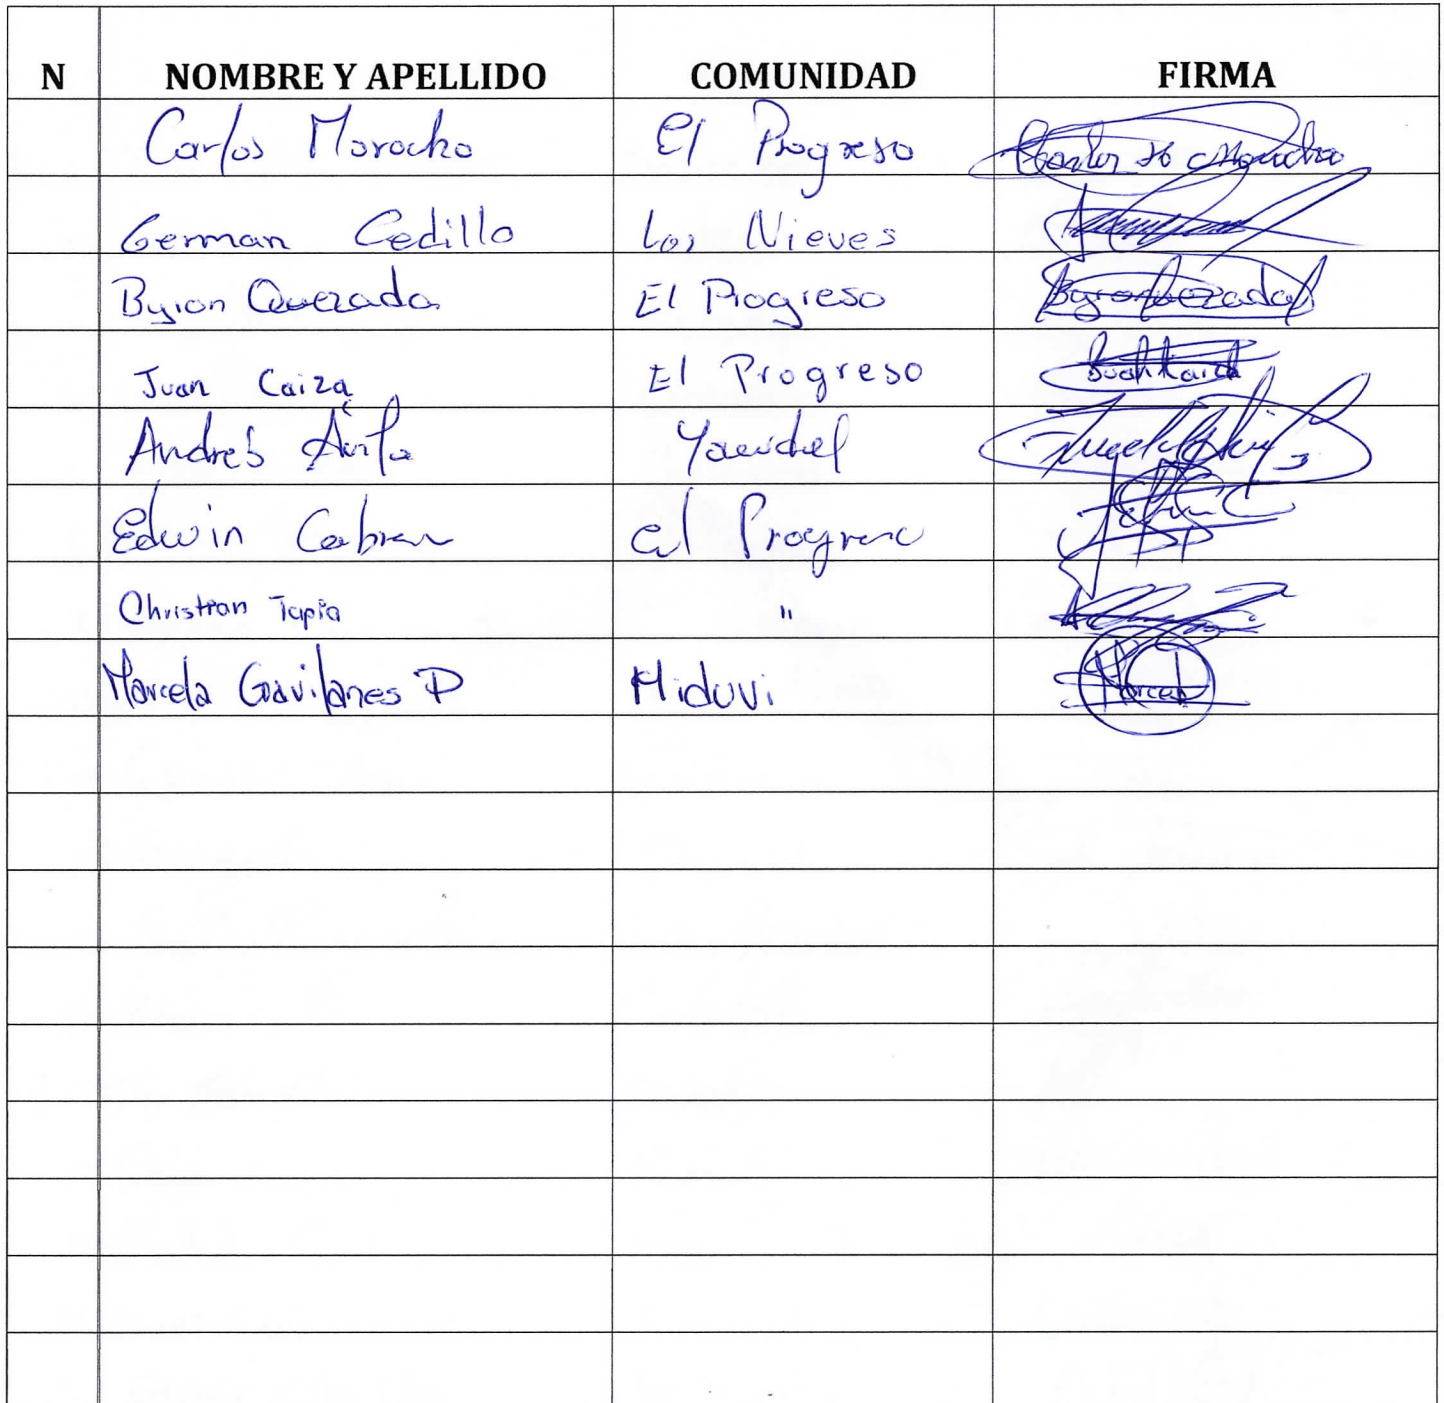 N NOMBRE Y APELLIDO COMUNIDAD FIRMA
Carlos Morocho El Progreso Carlos H Morocho
German Cedillo Las Nieves
Byron Quezada El Progreso Byron Quezada
Juan Caiza El Progreso Juan Caiza
Andres Avila
Edwin Cabrera El Progreso
Christian Tapia "
Marcela Gavilanes P Miduvi Marcela